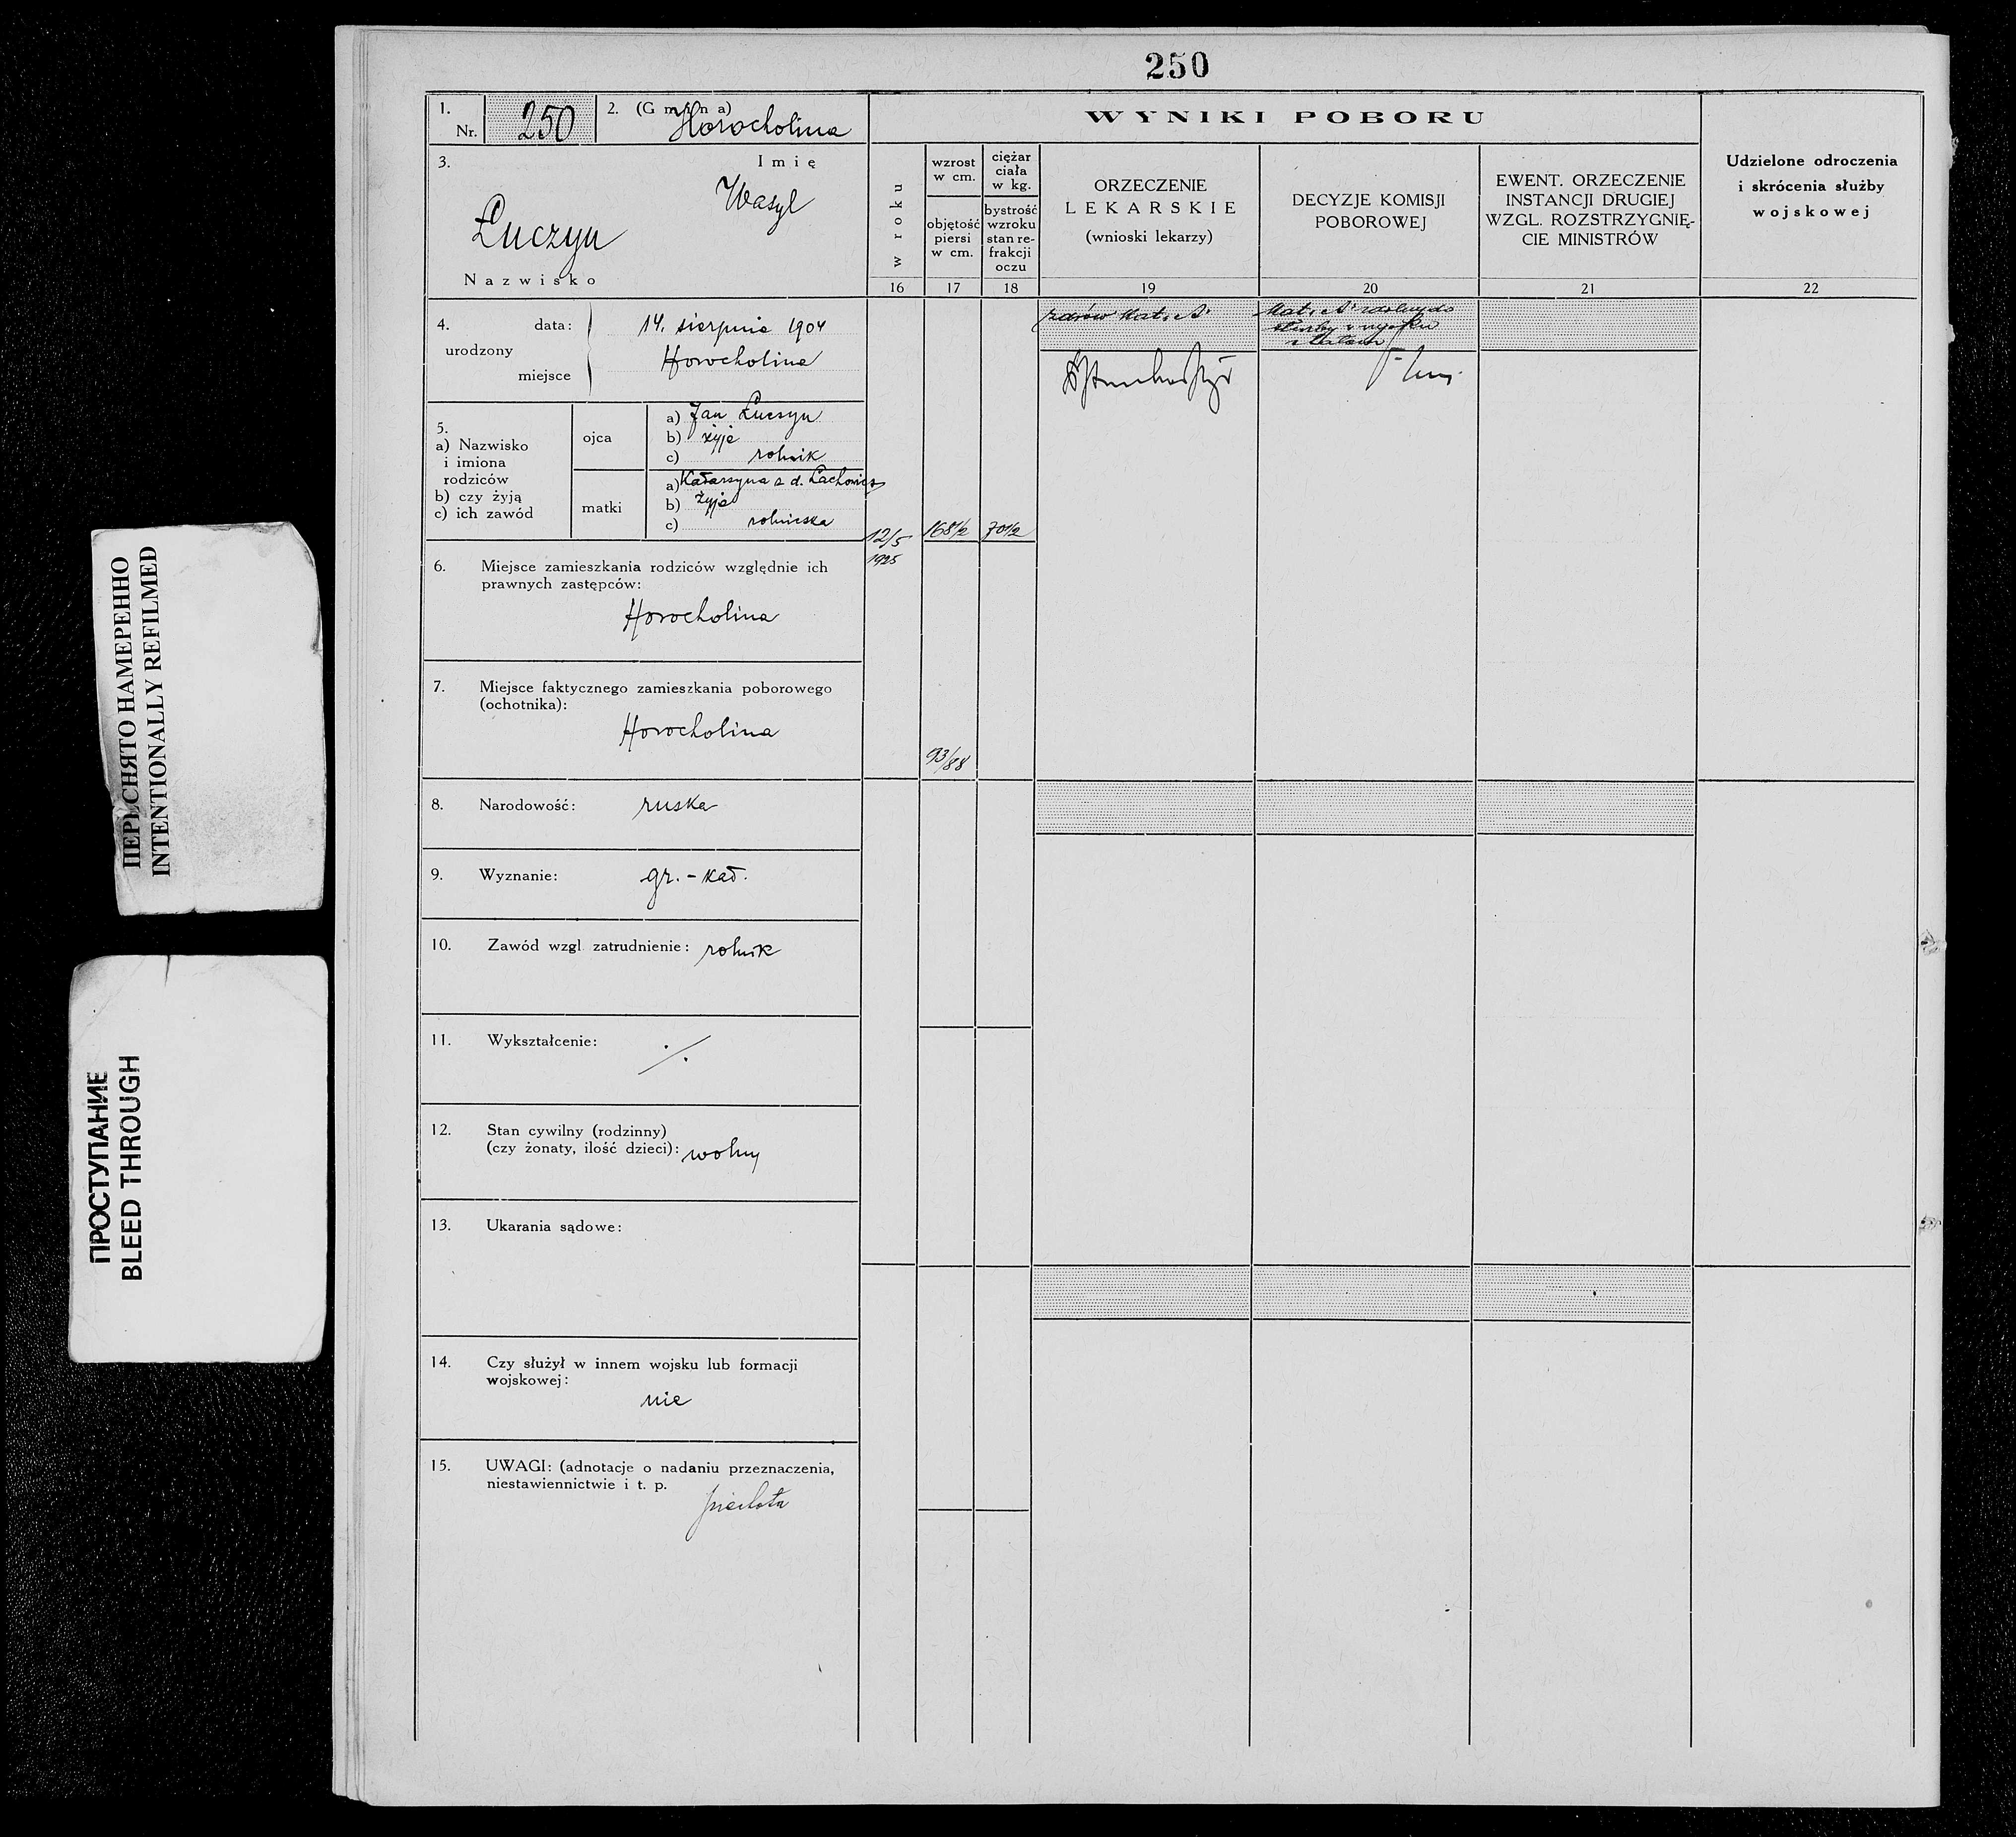 250
1.
Nr. 250
2. (Gmina)
Horocholina
3.
Imię
Wasyl
Łuczyn
Nazwisko
4.
urodzony
data: 14. sierpnia 1904
miejsce
Horocholina
5.
a) Nazwisko
i imiona
rodziców
b) czy żyją
c) ich zawód
ojca
a) Jan Łuczyn
b) żyje
c) rolnik
matki
a) Katarzyna z d. Lachowicz
b) żyje
c) rolniczka
6. Miejsce zamieszkania rodziców względnie ich
prawnych zastępców:
Horocholina
7. Miejsce faktycznego zamieszkania poborowego
(ochotnika):
Horocholina
8. Narodowość: ruska
9. Wyznanie: gr.-kat.
10. Zawód wzgl. zatrudnienie: rolnik
11. Wykształcenie: ·/·
12. Stan cywilny (rodzinny)
(czy żonaty, ilość dzieci): wolny
13. Ukarania sądowe:
14. Czy służył w innem wojsku lub formacji
wojskowej:
nie
15. UWAGI: (adnotacje o nadaniu przeznaczenia,
niestawiennictwie i t. p.
piechota
WYNIKI POBORU
w roku
16
wzrost
w cm.
objętość
piersi
w cm.
17
ciężar
ciała
w kg.
bystrość
wzroku
stan re-
frakcji
oczu
18
ORZECZENIE
LEKARSKIE
(wnioski lekarzy)
19
DECYZJE KOMISJI
POBOROWEJ
20
EWENT. ORZECZENIE
INSTANCJI DRUGIEJ
WZGL. ROZSTRZYGNIĘ-
CIE MINISTRÓW
21
Udzielone odroczenia
i skrócenia służby
wojskowej
22
12/5
1925
168½
70½
93/88
zdrów Kat. A
Kat. A zdolny do
służby w wojsku
ПЕРЕСНЯТО НАМЕРЕННО
INTENTIONALLY REFILMED
ПРОСТУПАНИЕ
BLEED THROUGH